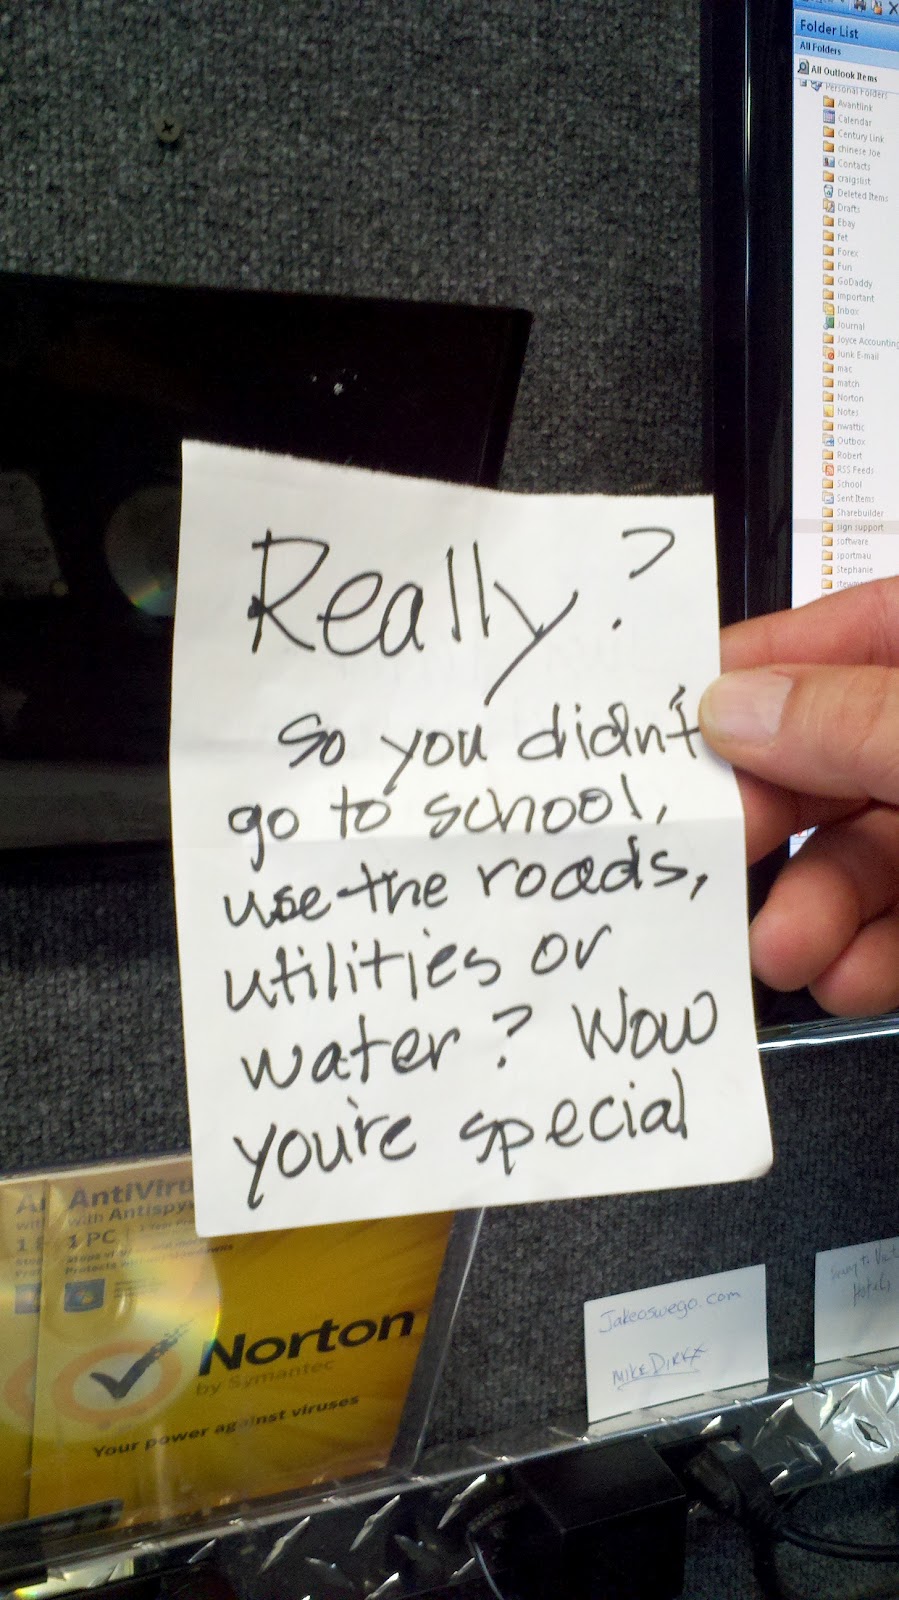 Really?
So you didn't
go to school,
use the roads,
utilities or
water? Wow
you're special
Folder List
All Folders
All Outlook Items
Personal Folders
Avantlink
Calendar
Century Link
chinese Joe
Contacts
craigslist
Deleted Items
Drafts
Ebay
fet
Forex
Fun
GoDaddy
important
Inbox
Journal
Joyce Accounting
Junk E-mail
mac
match
Norton
Notes
nwattic
Outbox
Robert
RSS Feeds
School
Sent Items
Sharebuilder
sign support
software
sportmau
Stephanie
AntiViru
with Antispyw
1 PC
Norton
by Symantec
Your power against viruses
Jakeoswego.com
MIKE DIRKX